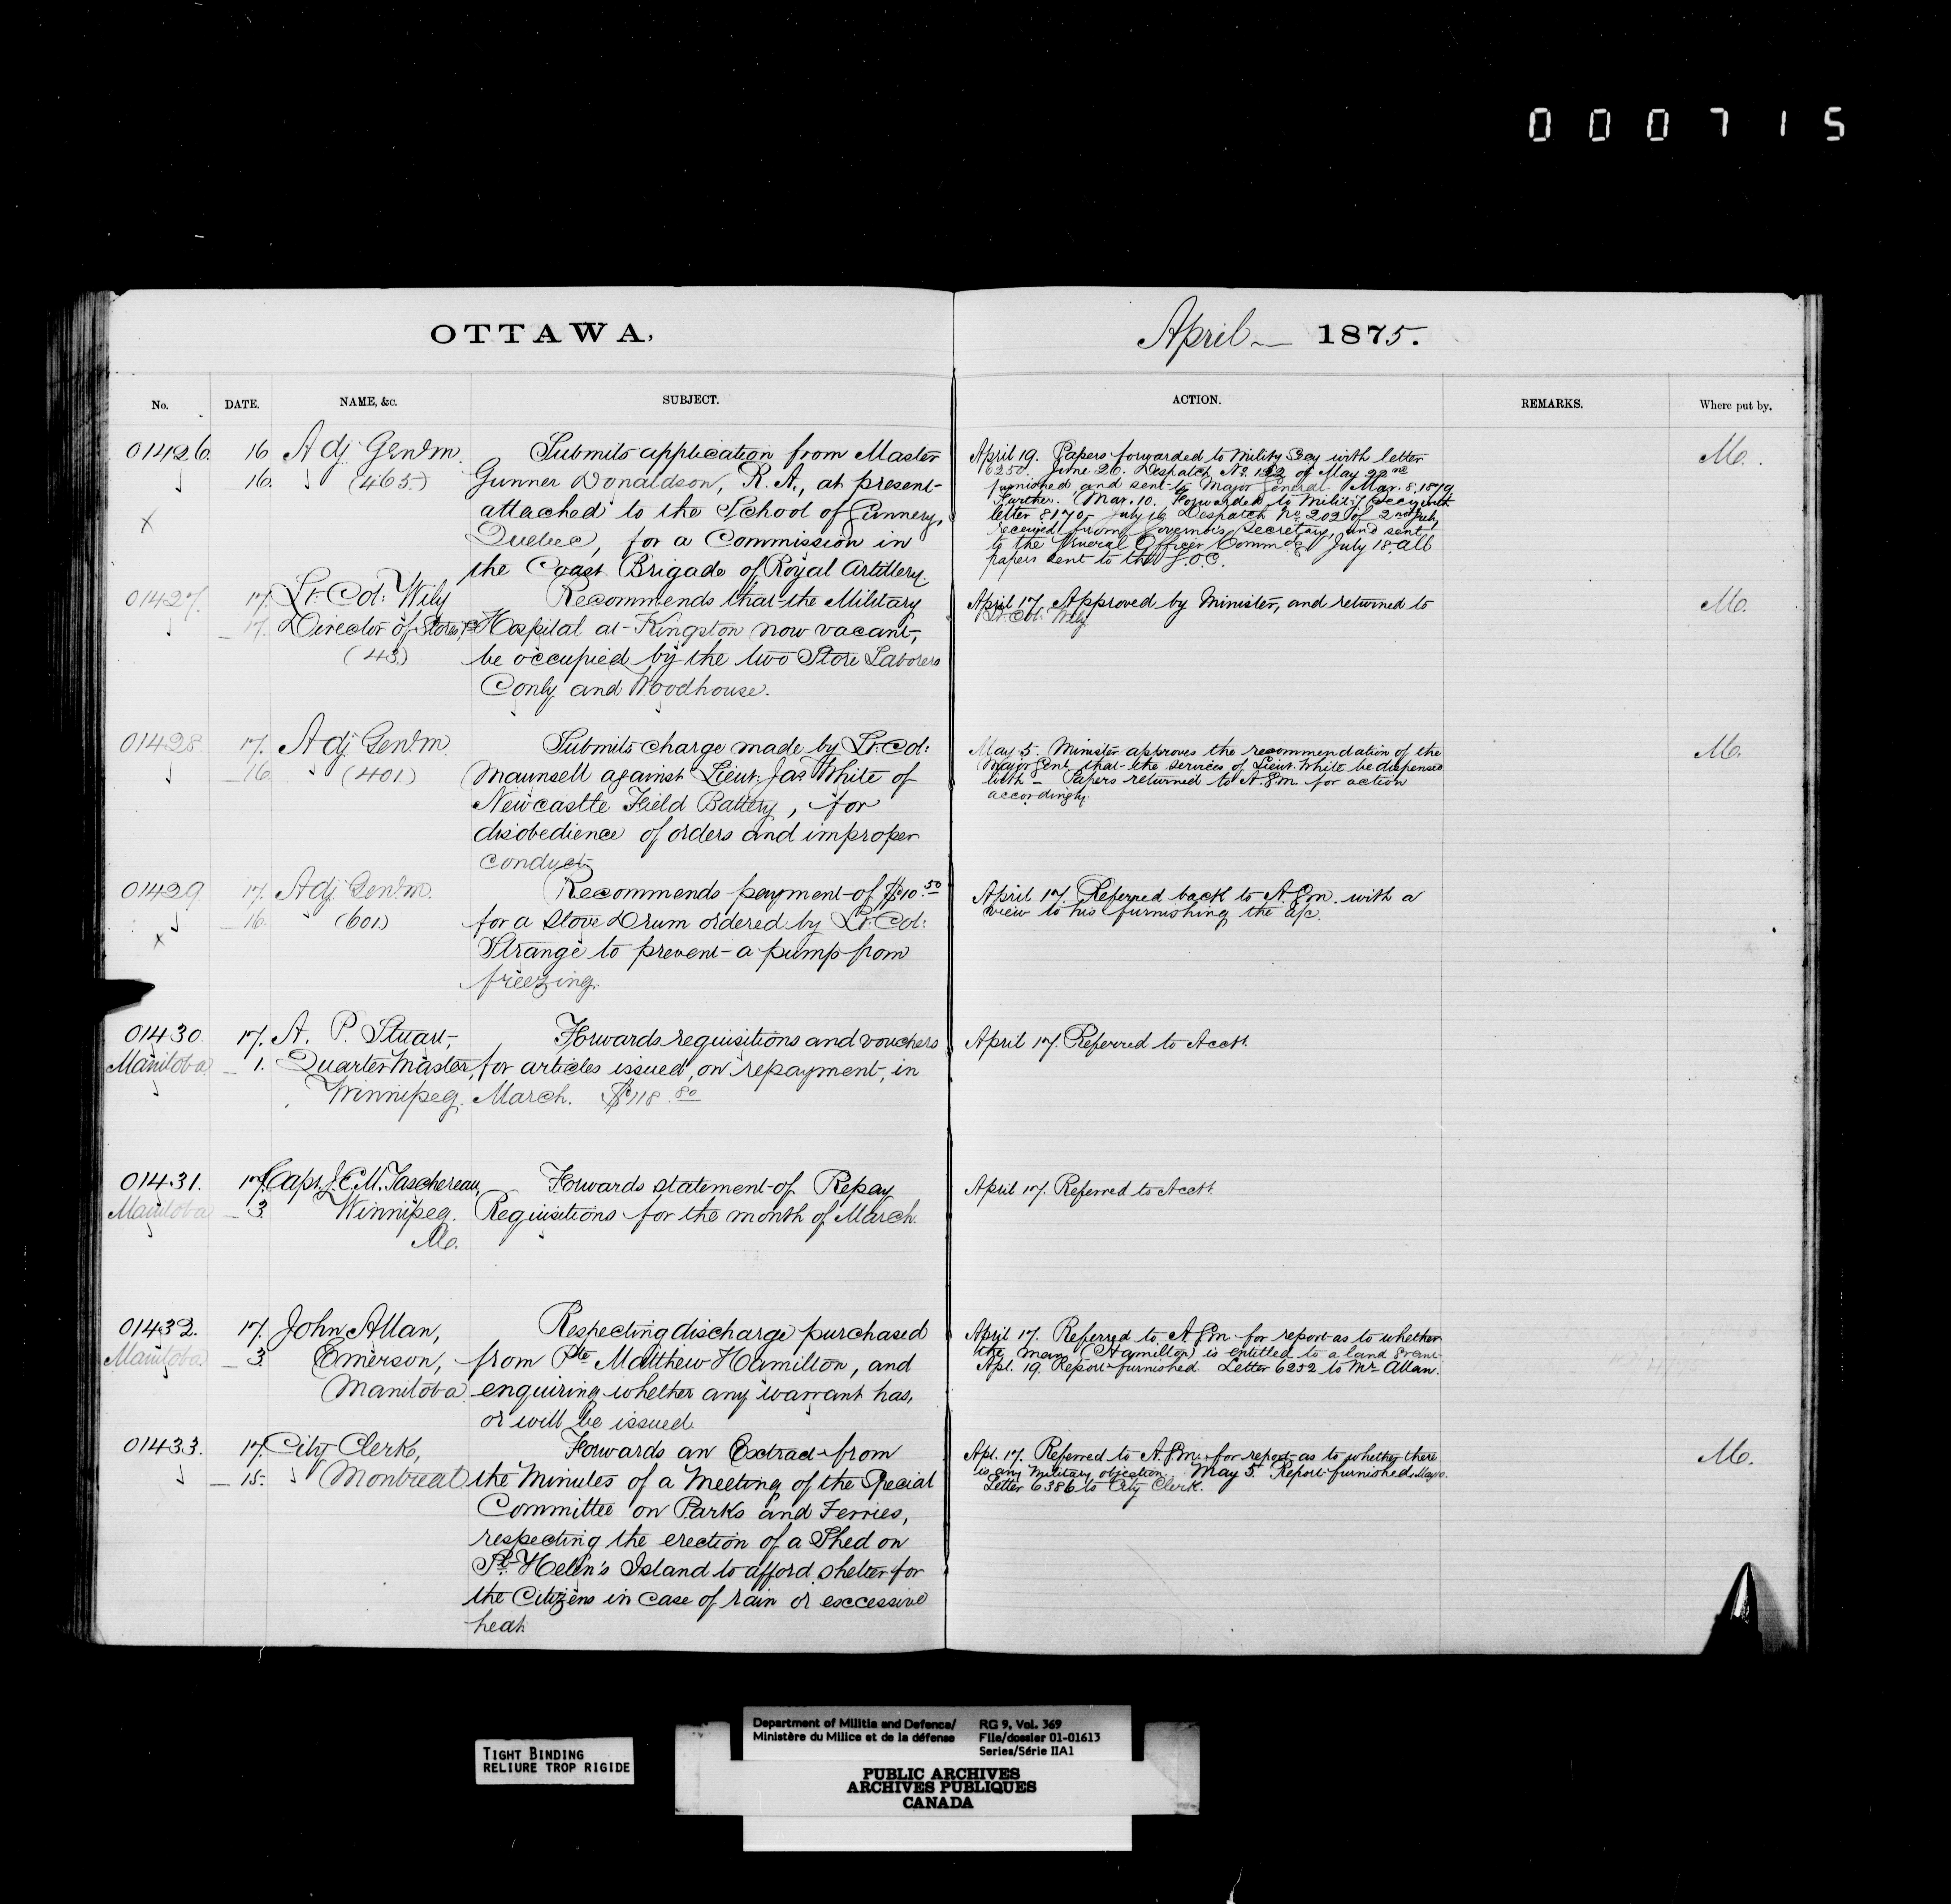 000715
OTTAWA,
April 1875.
No. DATE. NAME, &c. SUBJECT. ACTION. REMARKS. Where put by.
01426. 16 Adj Gen'l m.
16. (465.)
Submits application from Master
Gunner Donaldson, R.A., at present
attached to the School of Gunnery,
Quebec, for a Commission in
the Coast Brigade of Royal Artillery.
April 19. Papers forwarded to Mility Secy with letter
6250. June 26. Despatch No. of May 22nd
and sent to Major General. Mar. 8, 1879
Further. Mar. 10. Forwarded to Milit'y Secy with
letter 8170. July 16 Despatch No. 202 of 2nd July
received from Governor's Secretary and sent
to the General Officer Commdg July 18. All
papers sent to the G.O.C.
Mo.
01427. 17. Lt. Col: Wily
17. Director of Stores &c
(43)
Recommends that the Military
Hospital at Kingston now vacant,
be occupied by the two Store Laborers
Conly and Woodhouse.
April 17. Approved by Minister, and returned to
Lt. Col. Wily.
Mo.
01428. 17. Adj Gen'l m.
16. (401.)
Submits charge made by Lt. Col:
Maunsell against Lieut: Jas White of
Newcastle Field Battery, for
disobedience of orders and improper
conduct
May 5. Minister approves the recommendation of the
Major Genl that the services of Lieut. White be dispensed
with - Papers returned to A.G.m. for action
accordingly.
Mo.
01429 17. Adj. Gen'l m.
16. (601.)
Recommends payment of $10.50
for a Stove Drum ordered by Lt. Col:
Strange to prevent a pump from
freezing.
April 17. Referred back to A.G.m. with a
view to his furnishing the a/c.
01430. 17. A. P. Stuart,
Manitoba 1. Quarter Master,
Winnipeg.
Forwards requisitions and vouchers
for articles issued, on repayment, in
March. $118.80
April 17. Referred to Acct.
01431. 17. Capt. J.C.M. Taschereau,
Manitoba 3. Winnipeg.
Mo.
Forwards statement of Repay
Requisitions for the month of March.
April 17. Referred to Acct.
01432. 17. John Allan,
Manitoba 3. Emerson,
Manitoba
Respecting discharge purchased
from Pte Matthew Hamilton, and
enquiring whether any warrant has,
or will be issued
April 17. Referred to A.G.m for report as to whether
the man (Hamilton) is entitled to a land Grant
Apl. 19. Report furnished. Letter 6252 to Mr. Allan.
01433. 17. City Clerk,
15. Montreal
Forwards an Extract from
the Minutes of a Meeting of the Special
Committee on Parks and Ferries,
respecting the erection of a Shed on
St. Helen's Island to afford shelter for
the Citizens in case of rain or excessive
heat
Apl. 17. Referred to A.G.m. for report as to whether there
is any Military objection. May 5. Report furnished.
Letter 6386 to City Clerk.
Mo.
TIGHT BINDING
RELIURE TROP RIGIDE
Department of Militia and Defence/
Ministère du Milice et de la défense
RG 9, Vol. 369
File/dossier 01-01613
Series/Série IIA1
PUBLIC ARCHIVES
ARCHIVES PUBLIQUES
CANADA